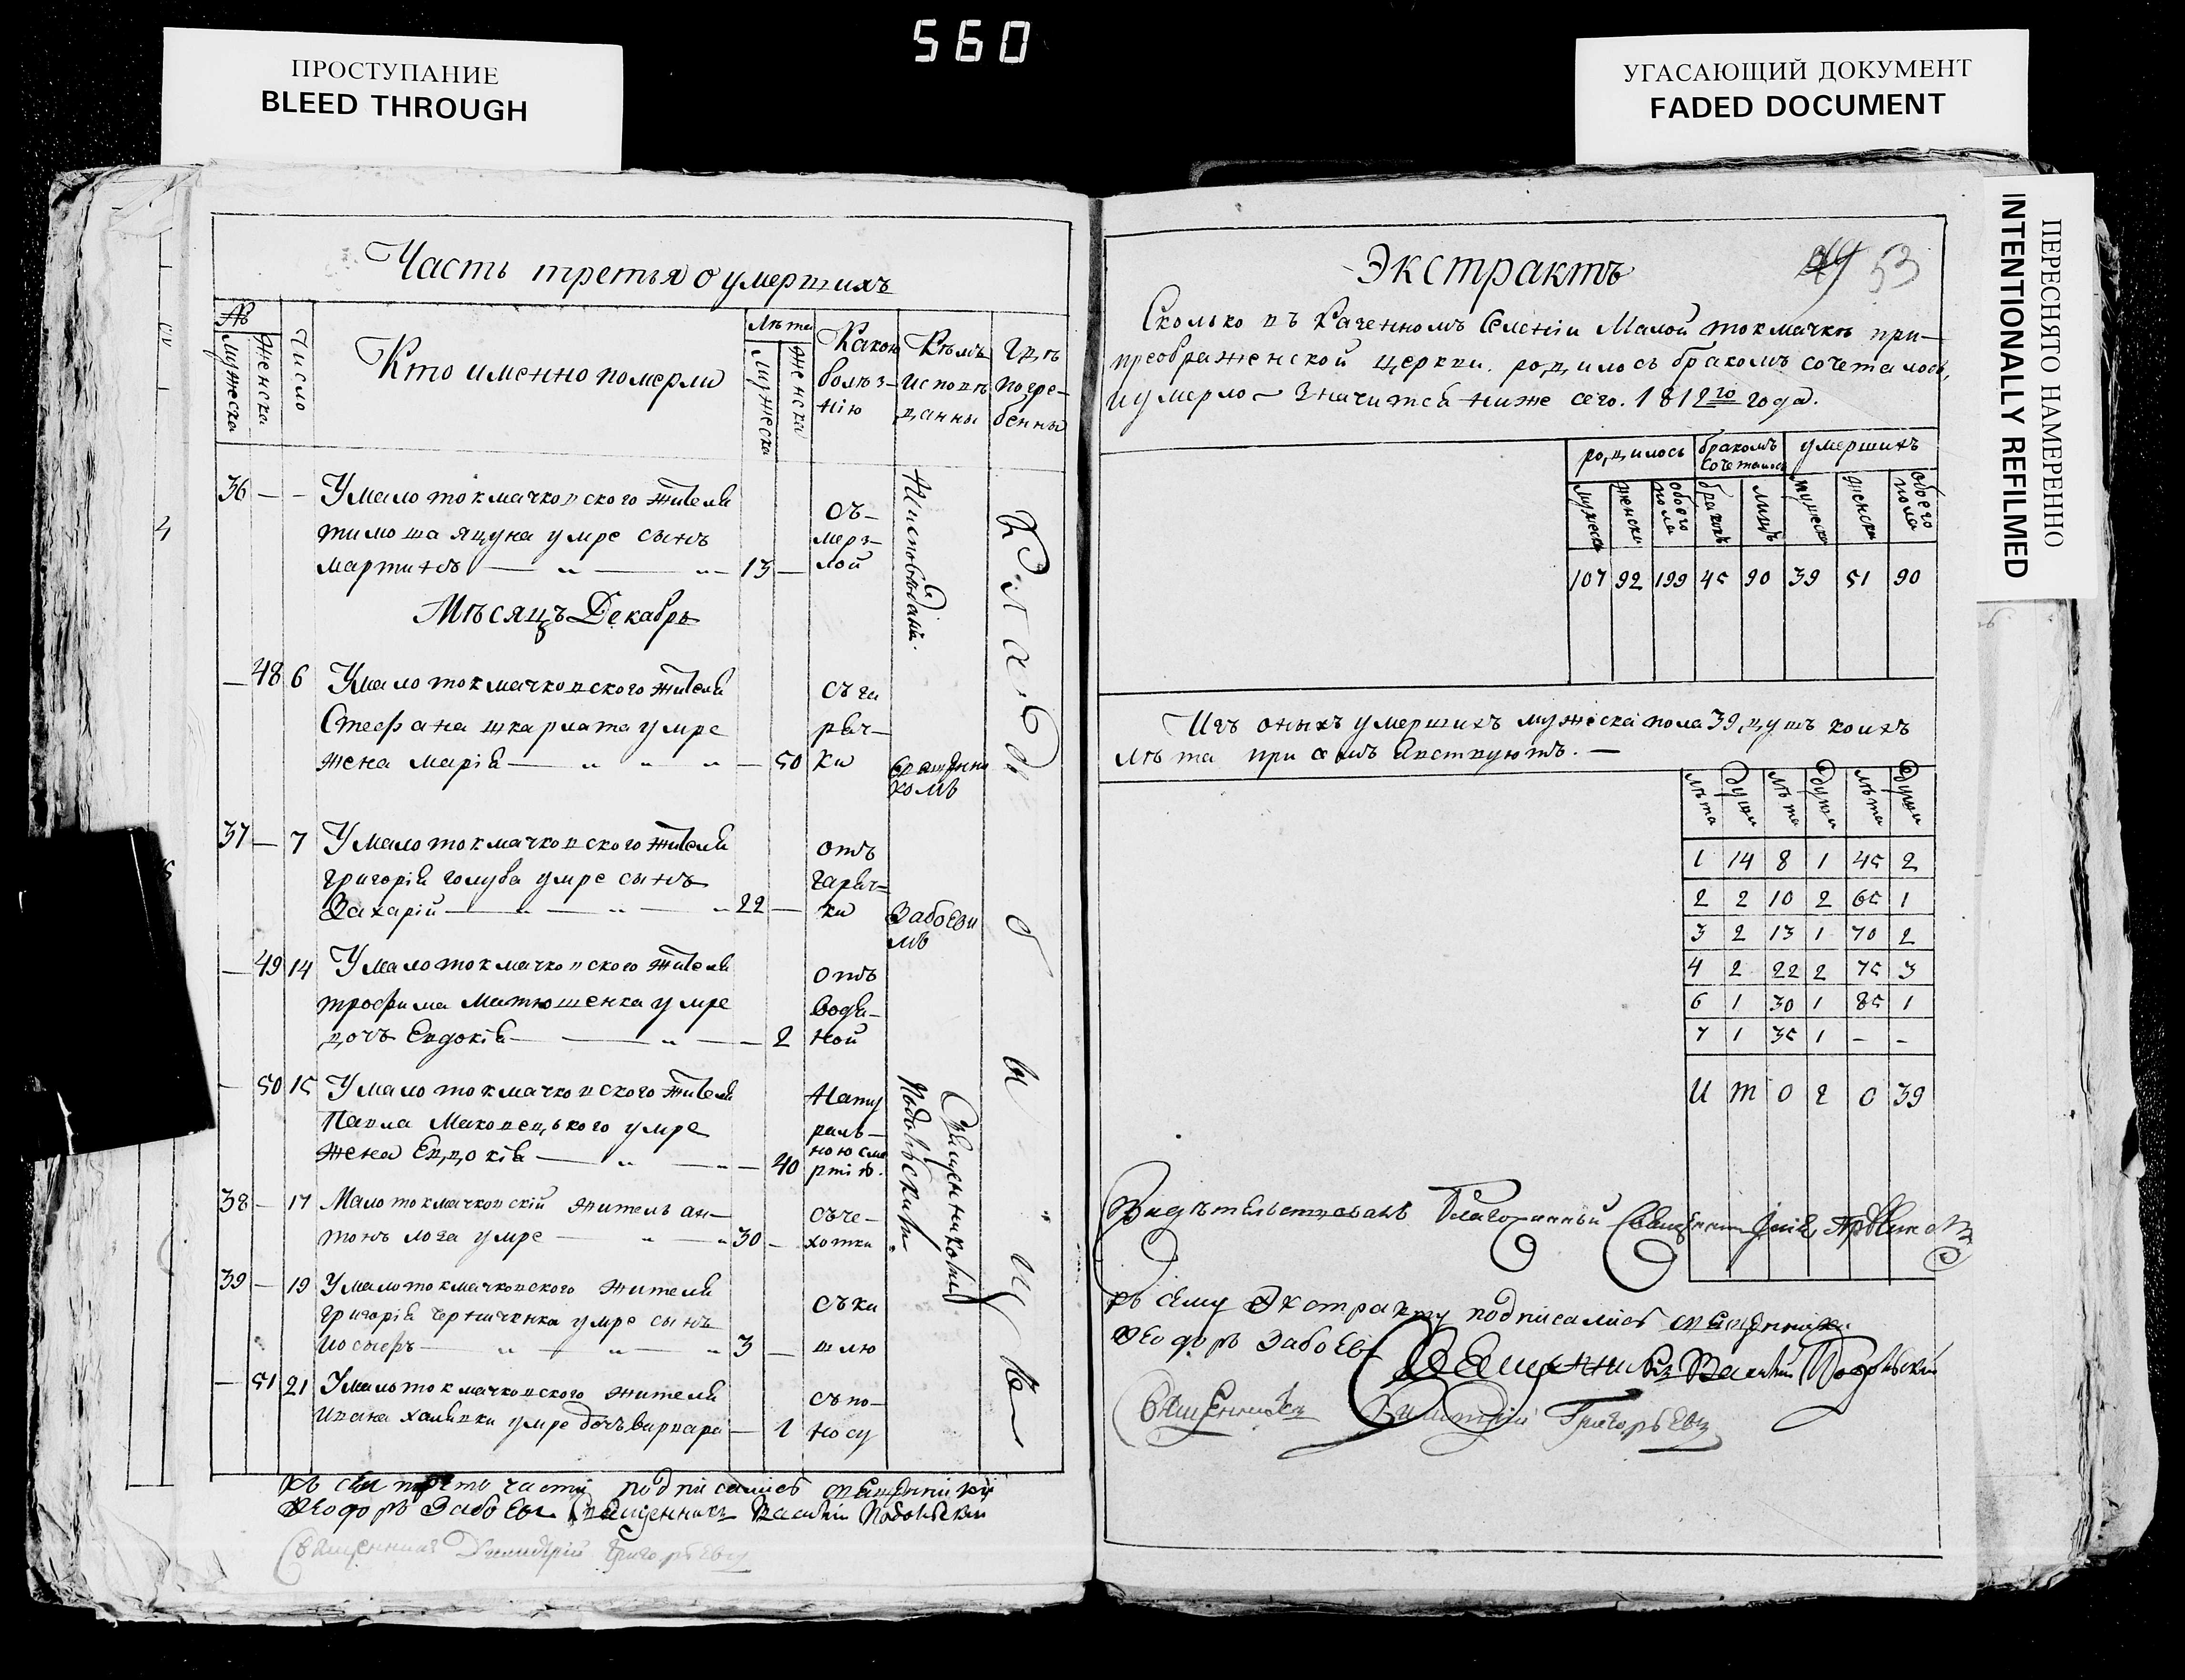 560
ПРОСТУПАНИЕ
BLEED THROUGH
УГАСАЮЩИЙ ДОКУМЕНТ
FADED DOCUMENT
ПЕРЕСНЯТО НАМЕРЕННО
INTENTIONALLY REFILMED
Часть третья о умершихъ
№
мужеска
женска
Число
Кто именно померли
Лѣта
мужеска
женска
Какою
болѣз-
нію
Кѣмъ
исповѣ
данны
Гдѣ
погре-
бенны
36 — — У малотокмачковского жителя
тимоша яцуна умре сынъ
мартинъ — 13 —
объ-
мерз-
лой
Мѣсяцъ Декабръ
— 48 6 У малотокмачковского жителя
Стефана шкарлата умре
жена марія — 50
съ га
ряч-
ки
священни
комъ
37 — 7 У малотокмачковского жителя
григорія голуба умре сынъ
Захарій — 22 —
отъ
гаряч-
ки
Забоеви
мъ
— 49 14 У малотокмачковского жителя
трофима Матюшенка умре
дочъ Евдокія — 2
отъ
водя-
ной
— 50 15 У малотокмачковского жителя
Павла Маковецького умре
жена Евдокія — 40
Нату
раль-
ною сме
ртію.
38 — 17 Малотокмачковскій житель ан-
тонъ лоза умре — 30 —
съ че-
хотки
39 — 19 У малотокмачковского жителя
григорія черниченка умре сынъ
иосыфъ — 3 —
съ ка
шлю
— 51 21 У малотокмачковского жителя
Ивана халявки умре дочъ варвара — 1
съ по-
носу
Священикомъ
Подольскимъ
къ сей третьей части подписались священники
Ѳеодоръ Забоевъ Священникъ Василій Подольскій
Священникъ Димитрій Григорьевъ
Экстрактъ
53
Сколько въ Казенномъ Селеніи Малой токмачкѣ при-
преображенской церкви. родилось бракомъ сочеталось,
и умерло — Значится ниже сего. 1812го года.
родилось
бракомъ
сочеталось
умершихъ
мужеска
женска
обоего
пола
браковъ
лицъ
мужеска
женска
обоего
пола
107 92 199 45 90 39 51 90
Изъ оныхъ умершихъ мужеска пола 39, душъ коихъ
лѣта при семъ явствуютъ. —
лѣта души лѣта души лѣта души
1 14 8 1 45 2
2 2 10 2 65 1
3 2 13 1 70 2
4 2 22 2 75 3
6 1 30 1 85 1
7 1 35 1 — —
И т о г о 39
Видѣтельствовалъ Благочинный Священникъ
къ сему Экстракту подписались священники
Ѳеодоръ Забоевъ
Священникъ Василій Подольскій
Священникъ Димитрій Григорьевъ